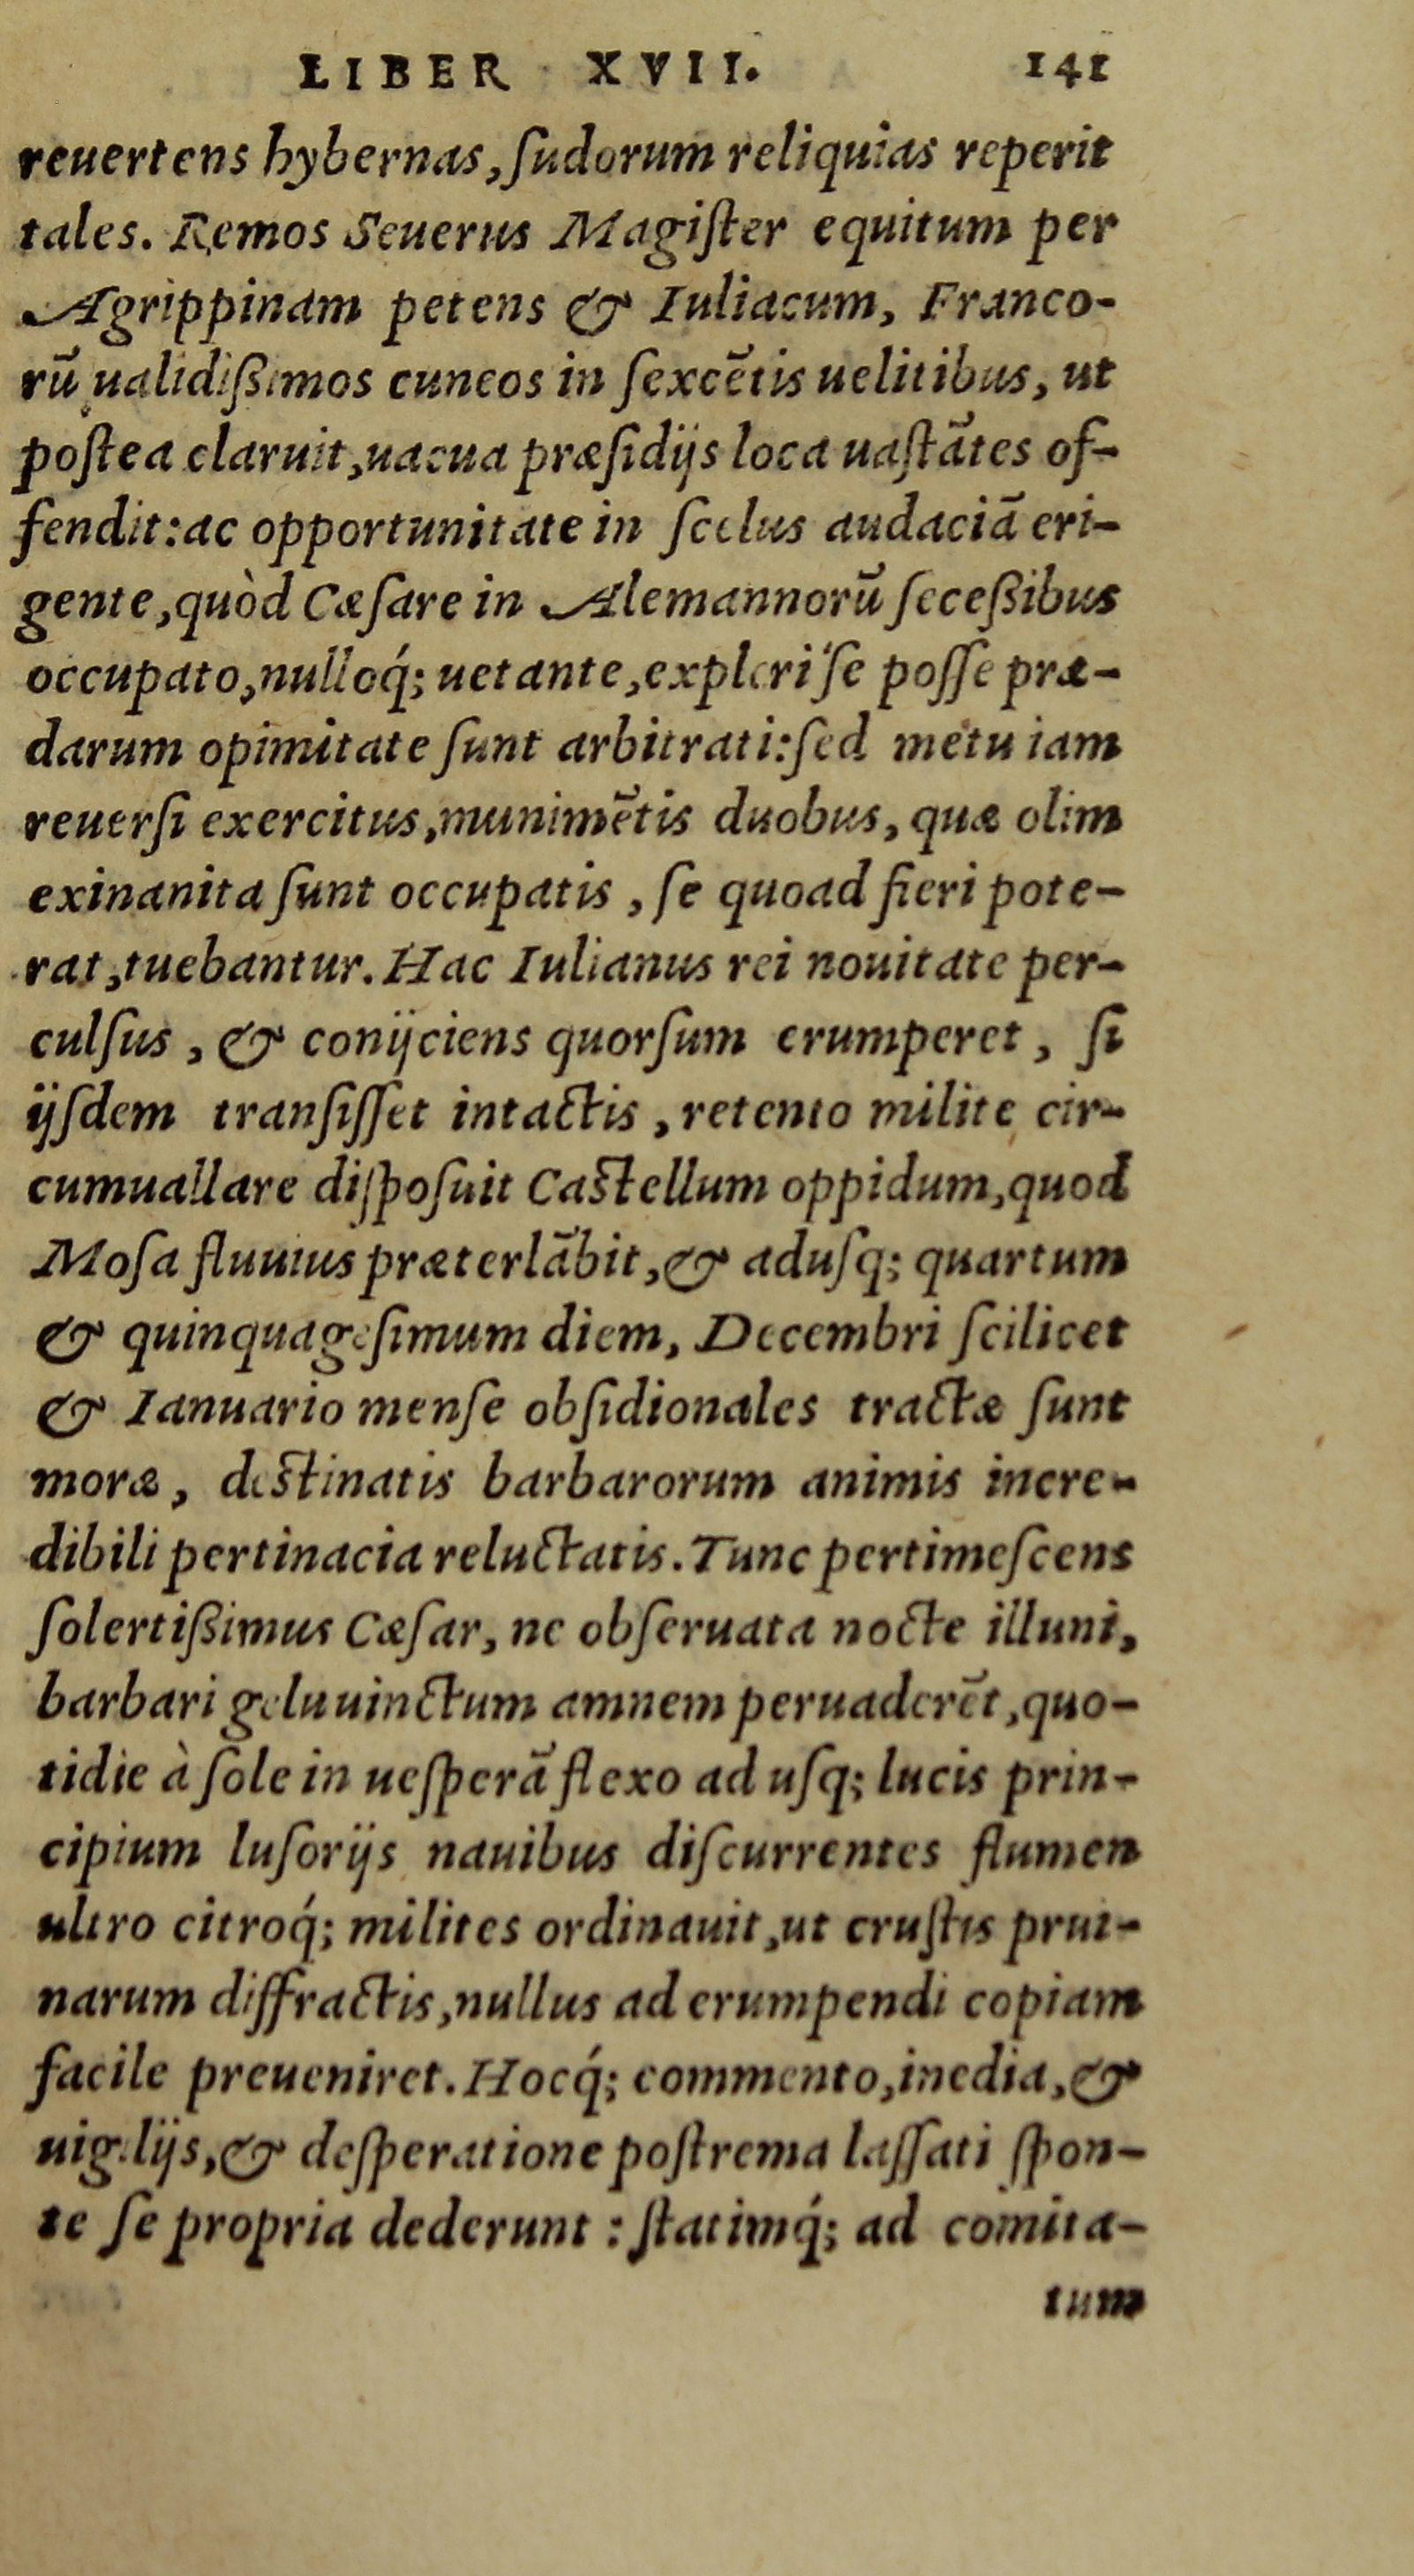 LIBER XVII. 141
reuertens hybernas, ſudorum reliquias reperit
tales. Remos Seuerus Magiſter equitum per
Agrippinam petens & Iuliacum, Franco-
rū ualidiſſimos cuneos in ſexcētis uelitibus, ut
poſtea claruit, uacua præſidijs loca uaſtātes of-
fendit: ac opportunitate in ſcelus audaciā eri-
gente, quòd Cæſare in Alemannorū ſeceßibus
occupato, nulloq́; uetante, expleri ſe poſſe præ-
darum opimitate ſunt arbitrati: ſed metu iam
reuerſi exercitus, munimētis duobus, quæ olim
exinanita ſunt occupatis, ſe quoad fieri pote-
rat, tuebantur. Hac Iulianus rei nouitate per-
culſus, & conijciens quorſum erumperet, ſi
ijſdem tranſiſſet intactis, retento milite cir-
cumuallare diſpoſuit Caſtellum oppidum, quod
Moſa fluuius præterlābit, & aduſq; quartum
& quinquageſimum diem, Decembri ſcilicet
& Ianuario menſe obſidionales tractæ ſunt
moræ, deſtinatis barbarorum animis incre-
dibili pertinacia reluctatis. Tunc pertimeſcens
ſolertißimus Cæſar, ne obſeruata nocte illuni,
barbari gelu uinctum amnem peruaderēt, quo-
tidie à ſole in ueſperā flexo ad uſq; lucis prin-
cipium luſorijs nauibus diſcurrentes flumen
ultro citroq́; milites ordinauit, ut cruſtis prui-
narum diffractis, nullus ad erumpendi copiam
facile preueniret. Hocq́; commento, inedia, &
uigilijs, & deſperatione poſtrema laſſati ſpon-
te ſe propria dederunt: ſtatimq́; ad comita-
tum